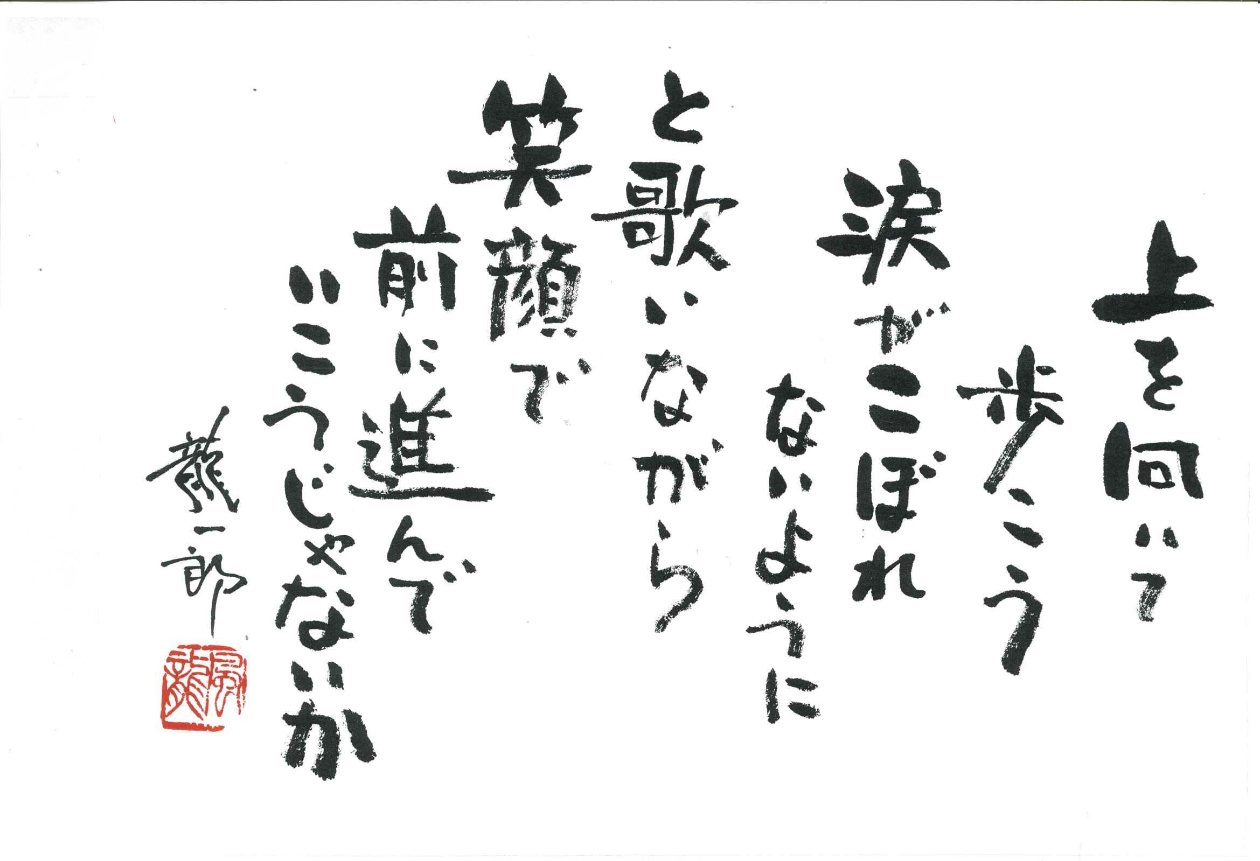 上を向いて
歩こう
涙がこぼれ
ないように
と歌いながら
笑顔で
前に進んで
いこうじゃないか
龍一郎
風龍